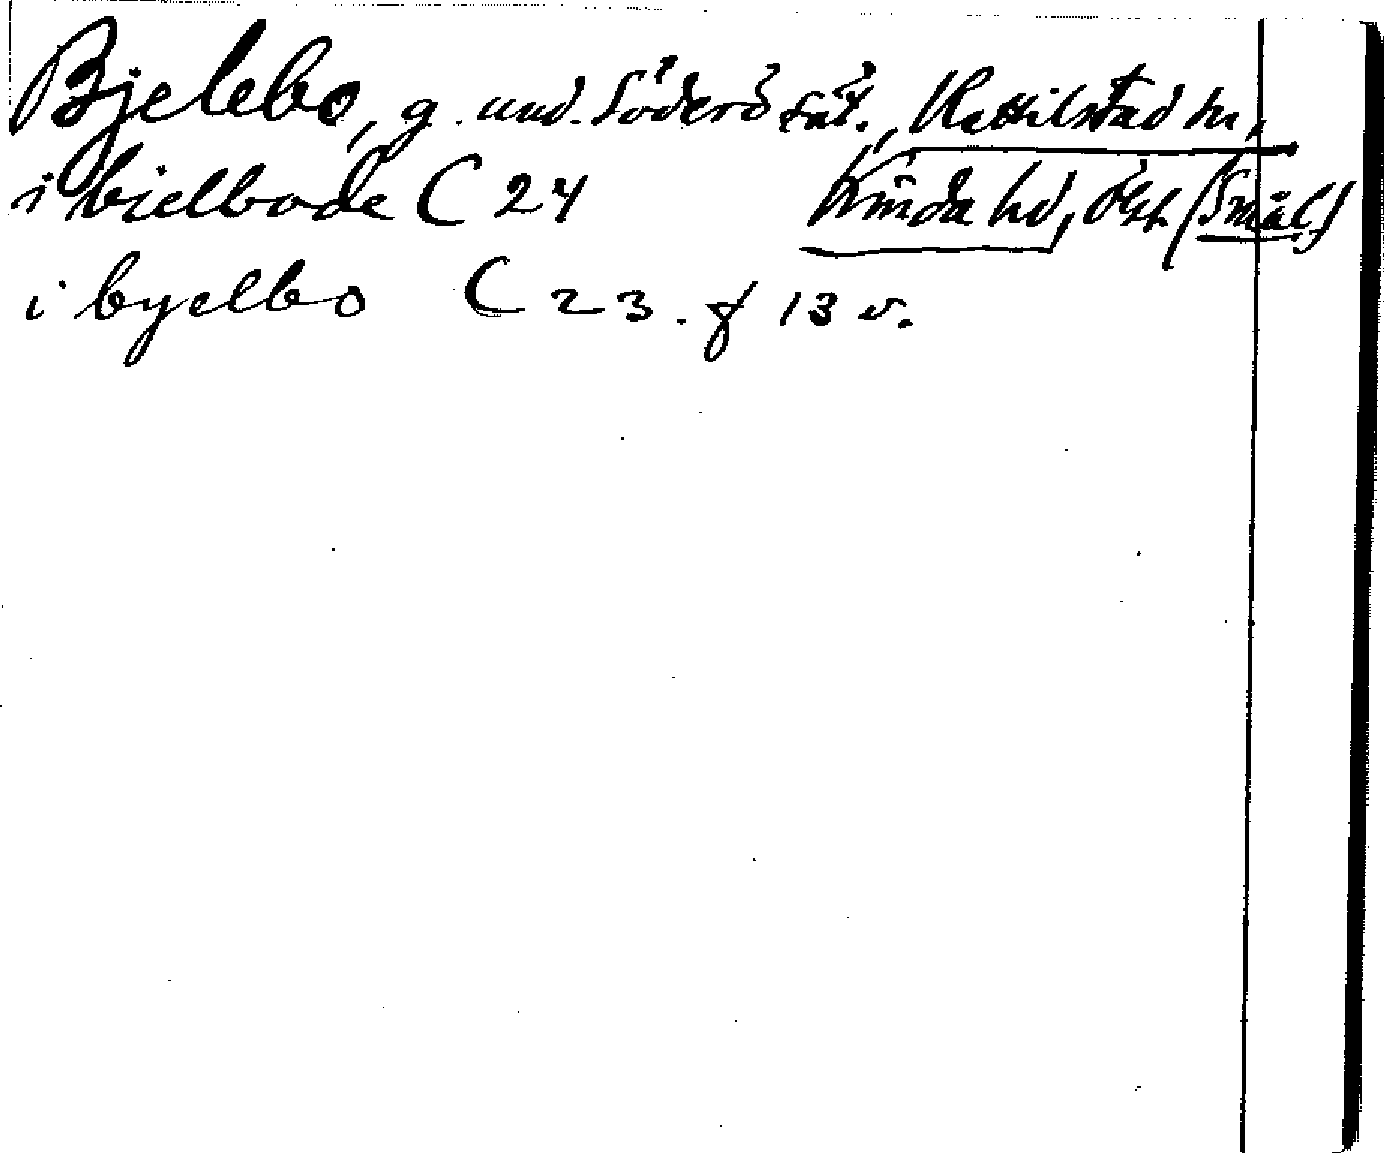 Bjelebo, g. und. Söderö sät., Kättilstad sn,
i bielbode C 24 Kinda hd, Ög. (Smål)
i byelbo C 23. f 13 v.